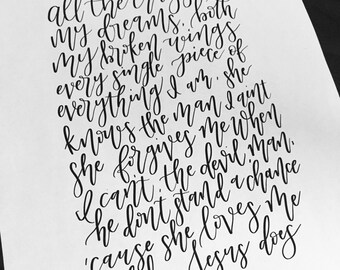 all the
my dreams. both
my broken wings
every single piece of
everything I am. she
knows the man I ain't
she forgives me when
I can't. the devil man,
he don't stand a chance
'cause she loves me
Jesus does